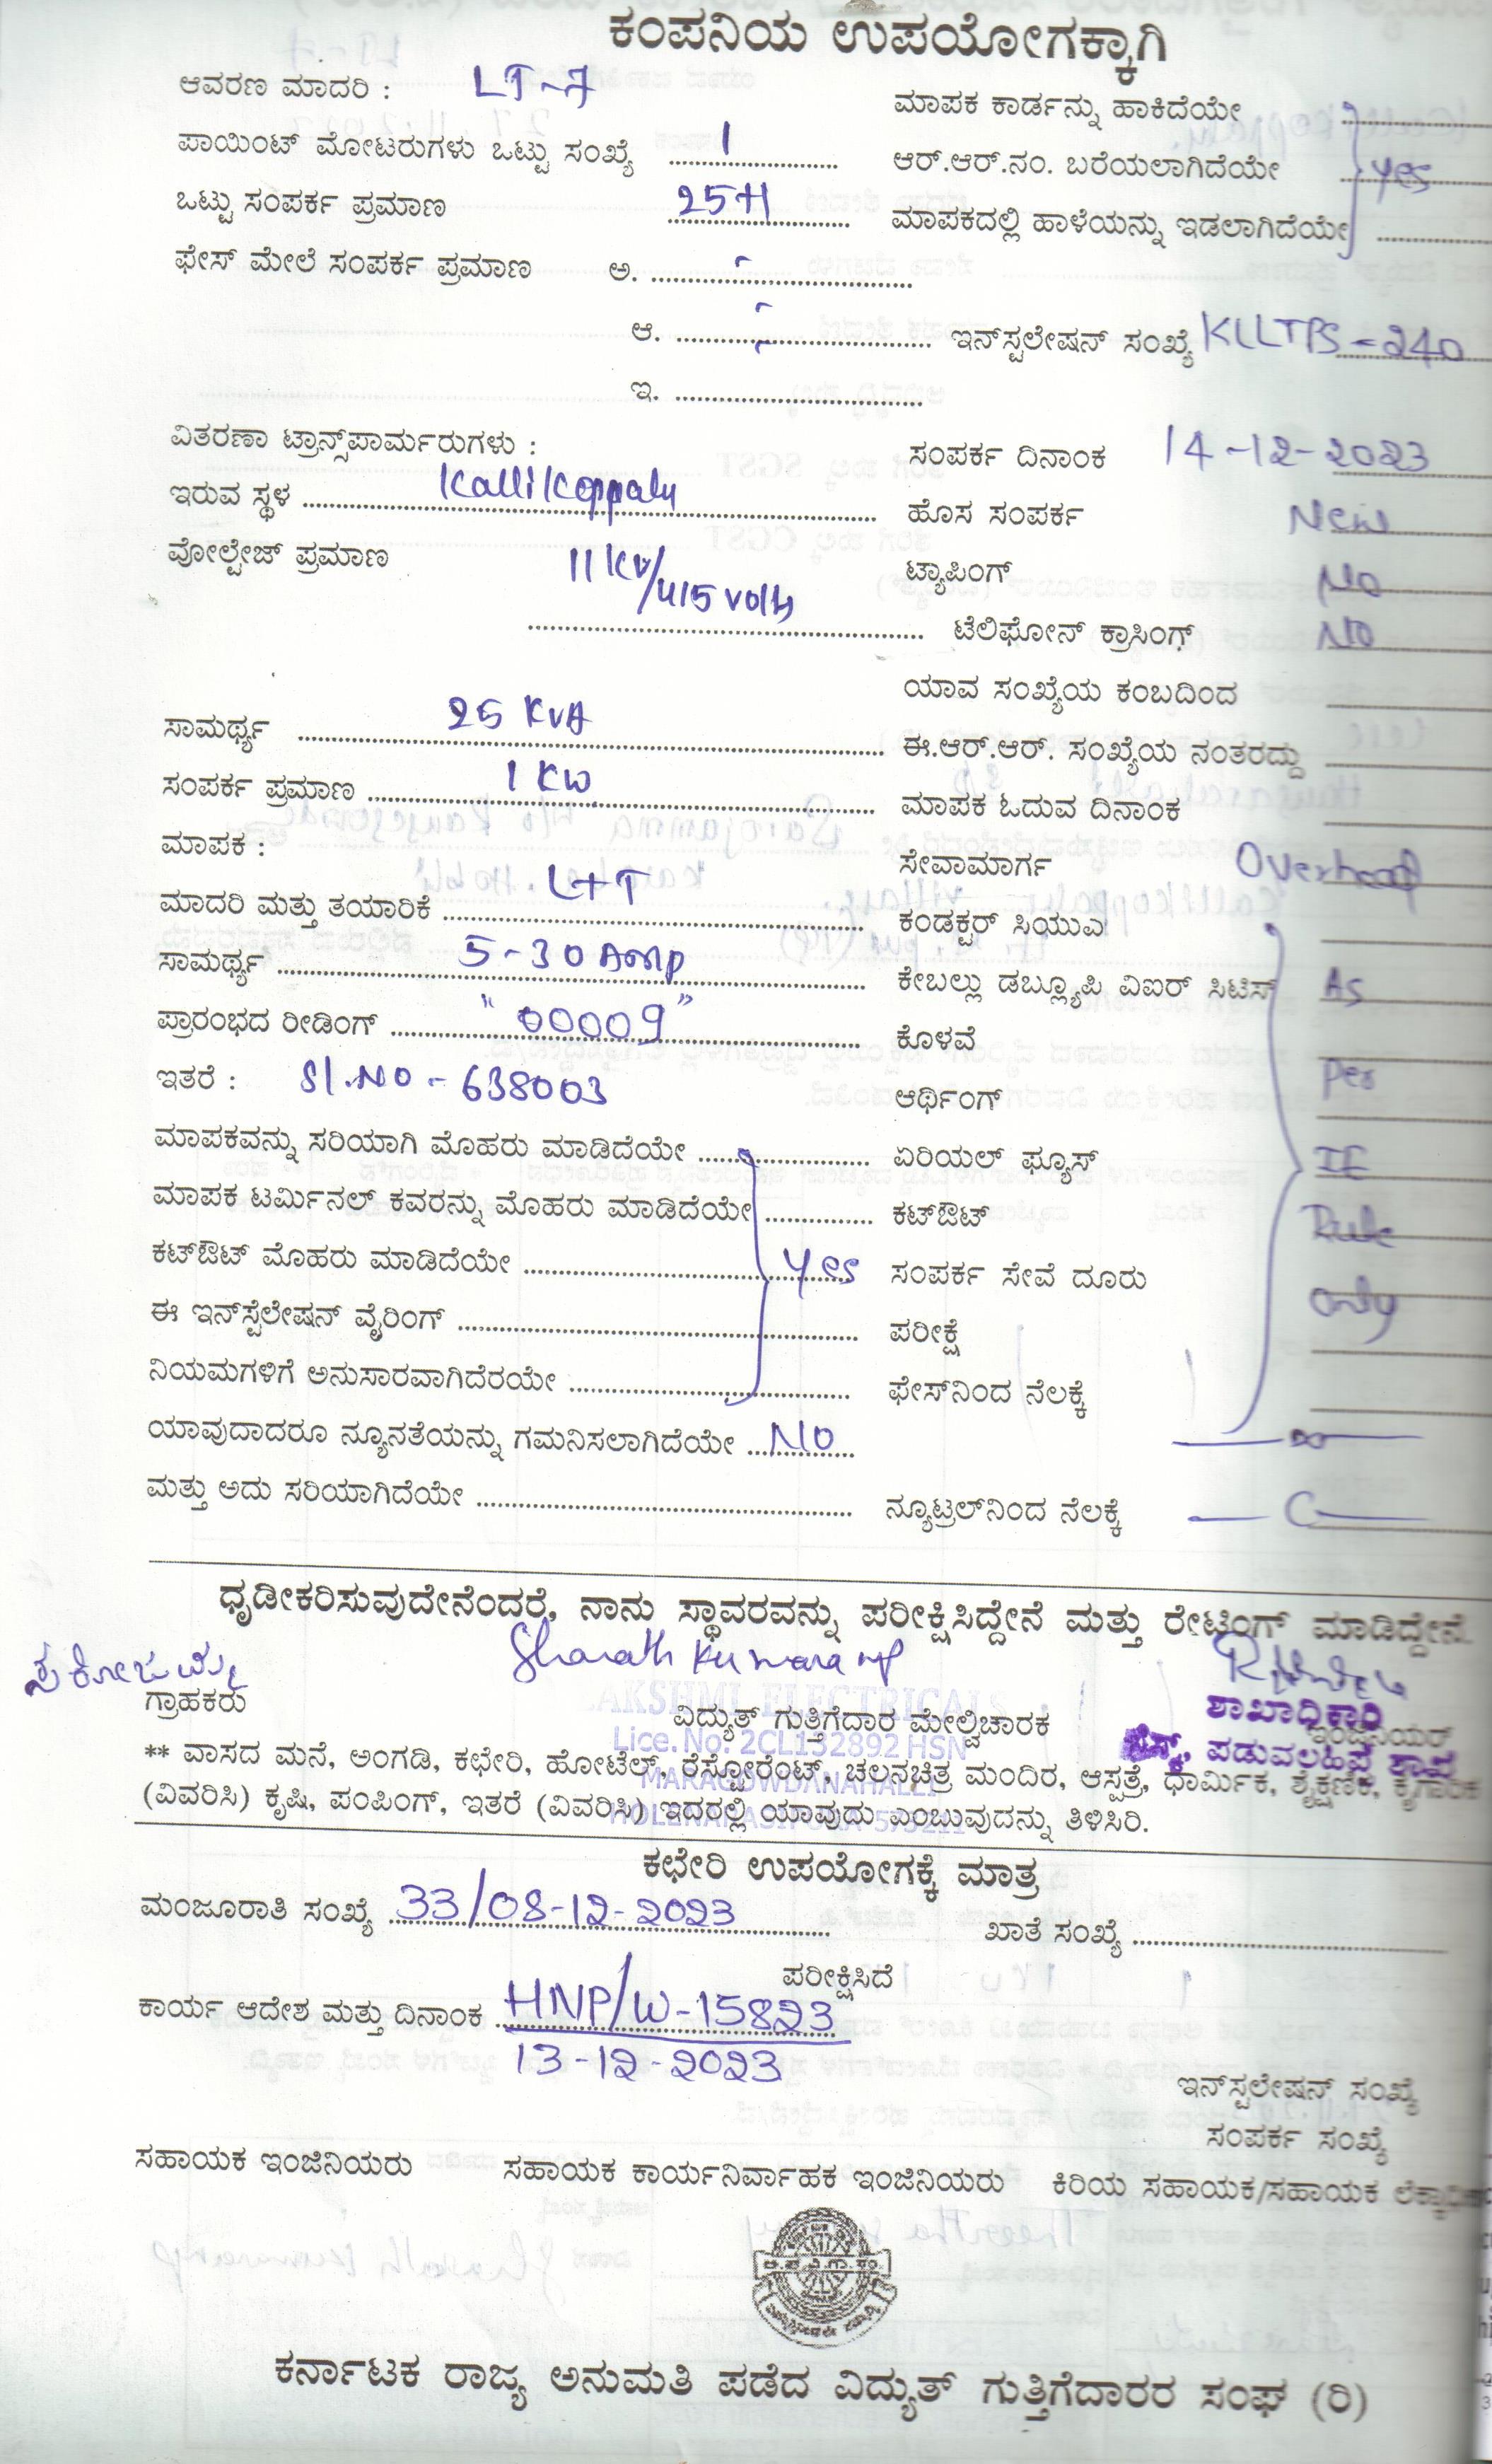 ಕಂಪನಿಯ ಉಪಯೋಗಕ್ಕಾಗಿ
ಆವರಣ ಮಾದರಿ : LT-7
ಮಾಪಕ ಕಾರ್ಡನ್ನು ಹಾಕಿದೆಯೇ
ಪಾಯಿಂಟ್ ಮೋಟರುಗಳು ಒಟ್ಟು ಸಂಖ್ಯೆ 1
ಆರ್.ಆರ್.ನಂ. ಬರೆಯಲಾಗಿದೆಯೇ yes
ಒಟ್ಟು ಸಂಪರ್ಕ ಪ್ರಮಾಣ
ಮಾಪಕದಲ್ಲಿ ಹಾಳೆಯನ್ನು ಇಡಲಾಗಿದೆಯೇ
ಫೇಸ್ ಮೇಲೆ ಸಂಪರ್ಕ ಪ್ರಮಾಣ ಅ.
ಆ.
ಇನ್‌ಸ್ಟಲೇಷನ್ ಸಂಖ್ಯೆ KLLTPS-240
ಇ.
ವಿತರಣಾ ಟ್ರಾನ್ಸ್‌ಪಾರ್ಮರುಗಳು :
ಸಂಪರ್ಕ ದಿನಾಂಕ 14-12-2023
ಇರುವ ಸ್ಥಳ Kallikoppalu
ಹೊಸ ಸಂಪರ್ಕ New
ವೋಲ್ಟೇಜ್ ಪ್ರಮಾಣ 11 KV/415 volts
ಟ್ಯಾಪಿಂಗ್ No
ಟೆಲಿಫೋನ್ ಕ್ರಾಸಿಂಗ್ NO
ಯಾವ ಸಂಖ್ಯೆಯ ಕಂಬದಿಂದ
ಸಾಮರ್ಥ್ಯ 25 KVA
ಈ.ಆರ್.ಆರ್. ಸಂಖ್ಯೆಯ ನಂತರದ್ದು
ಸಂಪರ್ಕ ಪ್ರಮಾಣ 1 KW
ಮಾಪಕ ಓದುವ ದಿನಾಂಕ
ಮಾಪಕ :
ಸೇವಾಮಾರ್ಗ Overhead
ಮಾದರಿ ಮತ್ತು ತಯಾರಿಕೆ L+T
ಕಂಡಕ್ಟರ್ ಸಿಯುಎ
ಸಾಮರ್ಥ್ಯ 5-30 Amp
ಕೇಬಲ್ಲು ಡಬ್ಲ್ಯೂಪಿ ವಿಐರ್ ಸಿಟಿಸ್ As
ಪ್ರಾರಂಭದ ರೀಡಿಂಗ್ "00009"
ಕೊಳವೆ Per
ಇತರೆ : Sl.No - 638003
ಆರ್ಥಿಂಗ್
ಮಾಪಕವನ್ನು ಸರಿಯಾಗಿ ಮೊಹರು ಮಾಡಿದೆಯೇ
ಏರಿಯಲ್ ಫ್ಯೂಸ್ IE
ಮಾಪಕ ಟರ್ಮಿನಲ್ ಕವರನ್ನು ಮೊಹರು ಮಾಡಿದೆಯೇ
ಕಟ್‌ಔಟ್ Rule
ಕಟ್‌ಔಟ್ ಮೊಹರು ಮಾಡಿದೆಯೇ yes
ಸಂಪರ್ಕ ಸೇವೆ ದೂರು only
ಈ ಇನ್‌ಸ್ಟೆಲೇಷನ್ ವೈರಿಂಗ್
ಪರೀಕ್ಷೆ
ನಿಯಮಗಳಿಗೆ ಅನುಸಾರವಾಗಿದೆರಯೇ
ಫೇಸ್‌ನಿಂದ ನೆಲಕ್ಕೆ
ಯಾವುದಾದರೂ ನ್ಯೂನತೆಯನ್ನು ಗಮನಿಸಲಾಗಿದೆಯೇ NO
ಮತ್ತು ಅದು ಸರಿಯಾಗಿದೆಯೇ
ನ್ಯೂಟ್ರಲ್‌ನಿಂದ ನೆಲಕ್ಕೆ
ಧೃಡೀಕರಿಸುವುದೇನೆಂದರೆ, ನಾನು ಸ್ಥಾವರವನ್ನು ಪರೀಕ್ಷಿಸಿದ್ದೇನೆ ಮತ್ತು ರೇಟಿಂಗ್ ಮಾಡಿದ್ದೇನೆ.
Sharath Kumara
ಶಾಖಾಧಿಕಾರಿ
ಗ್ರಾಹಕರು
LAKSHMI ELECTRICALS
ವಿದ್ಯುತ್ ಗುತ್ತಿಗೆದಾರ ಮೇಲ್ವಿಚಾರಕ
ಇಂಜಿನಿಯರ್
Lice. No. 2CL132892 HSN
ಪಡುವಲಹಿಪ್ಪೆ ಶಾಖೆ
** ವಾಸದ ಮನೆ, ಅಂಗಡಿ, ಕಛೇರಿ, ಹೋಟೆಲ್, ರೆಸ್ಟೋರೆಂಟ್, ಚಲನಚಿತ್ರ ಮಂದಿರ, ಆಸ್ಪತ್ರೆ, ಧಾರ್ಮಿಕ, ಶೈಕ್ಷಣಿಕ, ಕೈಗಾರಿಕ
MARAGOWDANAHALLI
(ವಿವರಿಸಿ) ಕೃಷಿ, ಪಂಪಿಂಗ್, ಇತರೆ (ವಿವರಿಸಿ) ಇದರಲ್ಲಿ ಯಾವುದು ಎಂಬುವುದನ್ನು ತಿಳಿಸಿರಿ.
ಕಛೇರಿ ಉಪಯೋಗಕ್ಕೆ ಮಾತ್ರ
ಮಂಜೂರಾತಿ ಸಂಖ್ಯೆ 33/08-12-2023
ಖಾತೆ ಸಂಖ್ಯೆ
ಪರೀಕ್ಷಿಸಿದೆ
ಕಾರ್ಯ ಆದೇಶ ಮತ್ತು ದಿನಾಂಕ HNP/W-15823
13-12-2023
ಇನ್‌ಸ್ಟಲೇಷನ್ ಸಂಖ್ಯೆ
ಸಂಪರ್ಕ ಸಂಖ್ಯೆ
ಸಹಾಯಕ ಇಂಜಿನಿಯರು ಸಹಾಯಕ ಕಾರ್ಯನಿರ್ವಾಹಕ ಇಂಜಿನಿಯರು ಕಿರಿಯ ಸಹಾಯಕ/ಸಹಾಯಕ
ಕರ್ನಾಟಕ ರಾಜ್ಯ ಅನುಮತಿ ಪಡೆದ ವಿದ್ಯುತ್ ಗುತ್ತಿಗೆದಾರರ ಸಂಘ (ರಿ)